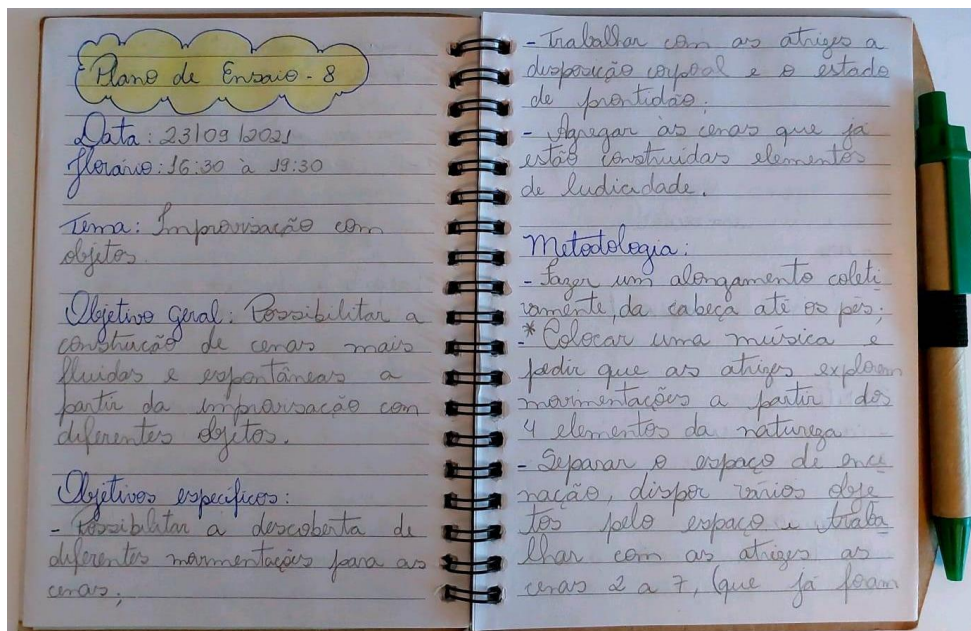 Plano de Ensaio - 8
Data: 23/09/2021
Horário: 16:30 à 19:30
Tema: Improvisação com
objetos.
Objetivo geral: Possibilitar a
construção de cenas mais
fluidas e espontâneas a
partir da improvisação com
diferentes objetos.
Objetivos específicos:
- Possibilitar a descoberta de
diferentes movimentações para as
cenas;
- Trabalhar com as atrizes a
disposição corporal e o estado
de prontidão;
- Agregar às cenas que já
estão construídas elementos
de ludicidade.
Metodologia:
- Fazer um alongamento coleti
vamente, da cabeça até os pés;
-* Colocar uma música e
pedir que as atrizes explorem
movimentações a partir dos
4 elementos da natureza
- Separar o espaço de ence
nação, dispor vários obje
tos pelo espaço e traba
lhar com as atrizes as
cenas 2 a 7, (que já foram